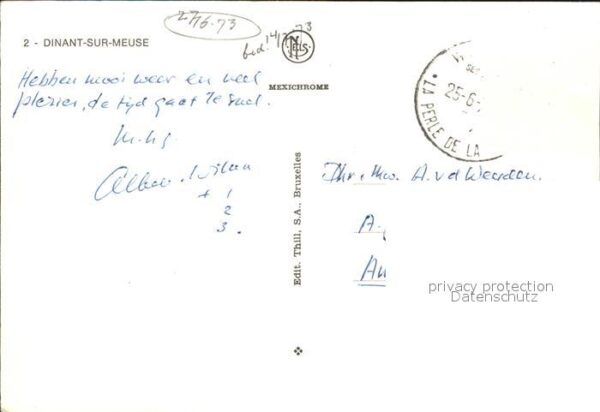 27/6-73
bed. 14/7-73
NELS
2 - DINANT-SUR-MEUSE
MEXICHROME
Hebben mooi weer en veel
plezier, de tijd gaat te snel.
m.h.g.
+ 1
2
3.
25-6-
• LA PERLE DE LA
Edit. Thill, S.A., Bruxelles
A. v d Weerden.
A.
An
privacy protection
Datenschutz